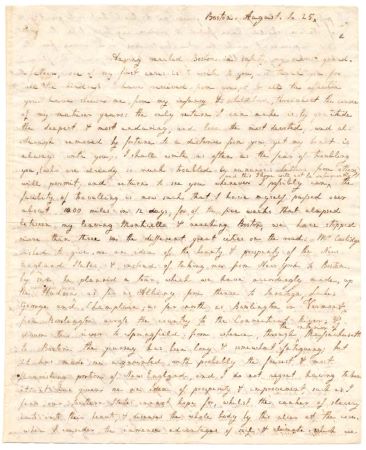 Boston, August. 1. 25.
Having reached Boston in safety, my dear grand-
father, one of my first cares is to write to you, to thank you for
all the kindness I have received from you, & for all the affection
you have shewn me, from my infancy & childhood, throughout the course
of my maturer years: the only return I can make is by gratitude
the deepest & most enduring and love the most devoted; and al-
though removed by fortune to a distance from you yet my heart is
always with you. I shall write as often as the fear of troubling
you, (who are already so much troubled by
will permit, and return to see you whenever I possibly can. the
facility of travelling is now such that I have myself passed over
about 1000 miles in 12 days, for of the five weeks that elapsed
between my leaving Monticello & reaching Boston, we have stopped
more than three in the different great cities on the road. Mr Coolidge
wished to give me an idea of the beauty & prosperity of the New
England States, & instead of taking me from New York to Boston
by sea he planned a tour, which we have accordingly made, up
the Hudson as far as Albany, from thence to Saratoga, Lakes
George and Champlain, as far north as Burlington in Vermont
from Burlington across the country to the Connecticut River, &
down the river to Springfield, from whence, through Massachusetts
to Boston. the journey has been long & somewhat fatiguing, but
has made me acquainted with probably the fairest & most
prosperous portion of New England, and I do not regret having taken
it. it has given me an idea of prosperity & improvement such as I
fear our Southern States cannot hope for, whilst the canker of slavery
eats into their hearts, & diseases the whole body by this ulcer at the core.
when I consider the immense advantages of soil & climate which we